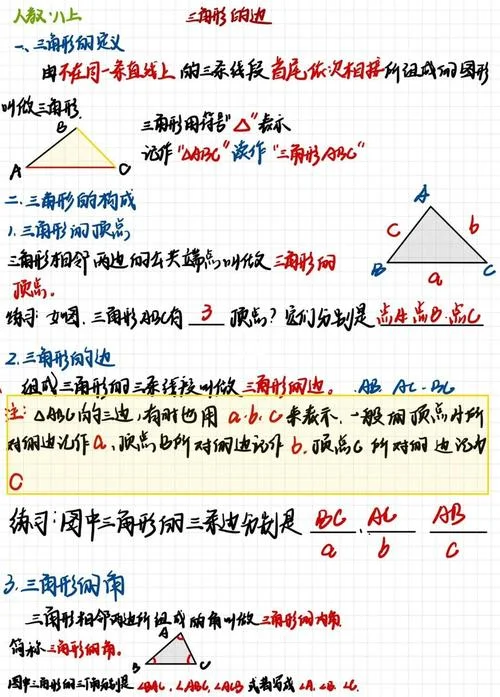 人教·八上
三角形的边
一、三角形的定义
由不在同一条直线上的三条线段首尾依次相接所组成的图形
叫做三角形.
B
A C
三角形用符号"△"表示
记作"△ABC"读作"三角形ABC"
二.三角形的构成
1.三角形的顶点
三角形相邻两边的公共端点叫做三角形的
顶点。
A
c b
B C
a
练习:如图.三角形ABC有 3 顶点?它们分别是点A.点B.点C
2.三角形的边
组成三角形的三条线段叫做三角形的边。AB. AC. BC
注:△ABC的三边,有时也用a.b.c来表示.一般的顶点A所
对的边记作a,顶点B所对的边记作b.顶点C所对的边记为
c
练习:图中三角形的三条边分别是 BC . AC AB
a b c
3.三角形的角
三角形相邻两边所组成的角叫做三角形的内角.
简称三角形的角。
A
B C
图中三角形的三个角分别是∠BAC,∠ABC,∠ACB 或者写成∠A.∠B.∠C.